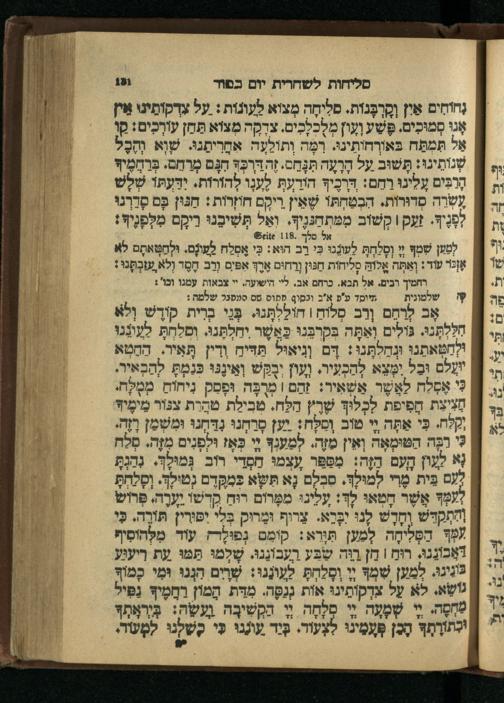 131 סליחות לשחרית יום כפור
נחוחים אין וקרבנות. סליחה מצוא לעונות: על צדקותינו אין
אנו סמוכים. פשע ועון מלוכלכים. צדקה מצוא תחן עורכים: קו
אל תמתח באורחותינו. רמה ותולעה אחריתנו. שוא והבל
שנותינו: תשוב על הרעה תנחם. זה דרכך חנם מרחם. ברחמיך
הרבים עלינו רחם: דרכיך הודעת לענו להורות. ידעתו שלש
עשרה סדורות. הבטחתו שאין ריקם חוזרות: חנון בם סדרנו
לפניך. זעק | קשוב ממתחנניך. ואל תשיבנו ריקם מלפניך:
אל מלך Seite 118.
למען שמך יי וסלחת לעוננו כי רב הוא: כי אסלח לעונם. ולחטאתם לא
אזכר עוד: ואתה אלוה סליחות חנון ורחום ארך אפים ורב חסד ולא עזבתנו:
רחמיך רבים. אל תבא. כרחם אב. ליי הישועה. יי צבאות עמנו וכו':
קה שלמונית מיוסד ע"פ א"ב ובסוף חתום שם המחבר שלמה:
אב לרחם ורב סלוח | חוללתנו. בני ברית קודש ולא
חללתנו. גולים ואתה בקרבנו כאשר יחלתנו. וסלחת לעוננו
ולחטאתנו ונחלתנו: דם וגיאול תדיח ודין תאיר. החטא
ועלם ובל ימצא להבעיר. ועון יבקש ואיננו כנמת להבאיר.
כי אסלח לאשר אשאיר: זהם | מרבה ופסק ניחוח ממלח.
חציצת חפיפת לכלוך שרץ הלח. טבילת טהרת צנור מימיך
יקלח. כי אתה יי טוב וסלח: יען סרחנו נדחנו ומשמן רזה.
כי רבה הטומאה ואין מזה. למענך יי כאז ולפנים מזה. סלח
נא לעון העם הזה: מספר עצמו חסדי רוב גמולך. נהגת
לעם בית מרי למולך. סבלם נא תשא כמקדם נטולך. וסלחת
לעמך אשר חטאו לך: עלינו ממרום רוח קדשו יערה. פרוש
והתקדש וחדש לנו יברא. צרוף ומרוק בלי יסורין תורה. כי
עמך הסליחה למען תורא: קומם נפולה עוד מלהוסיף
דאבוננו. רוח | חן רוה שבע רעבוננו. שלמו תמו עת ריעוע
בונינו. למען שמך יי וסלחת לעוננו: שרים הננו ומי כמוך
נושא. לא על צדקותינו אות ננסה. מדת המון רחמיך נפיל
מחסה. יי שמעה יי סלחה יי הקשיבה ועשה: ביראתך
ובתורתך הכן פעמינו לצעוד. ביד עוננו כי כשלנו למעוד.